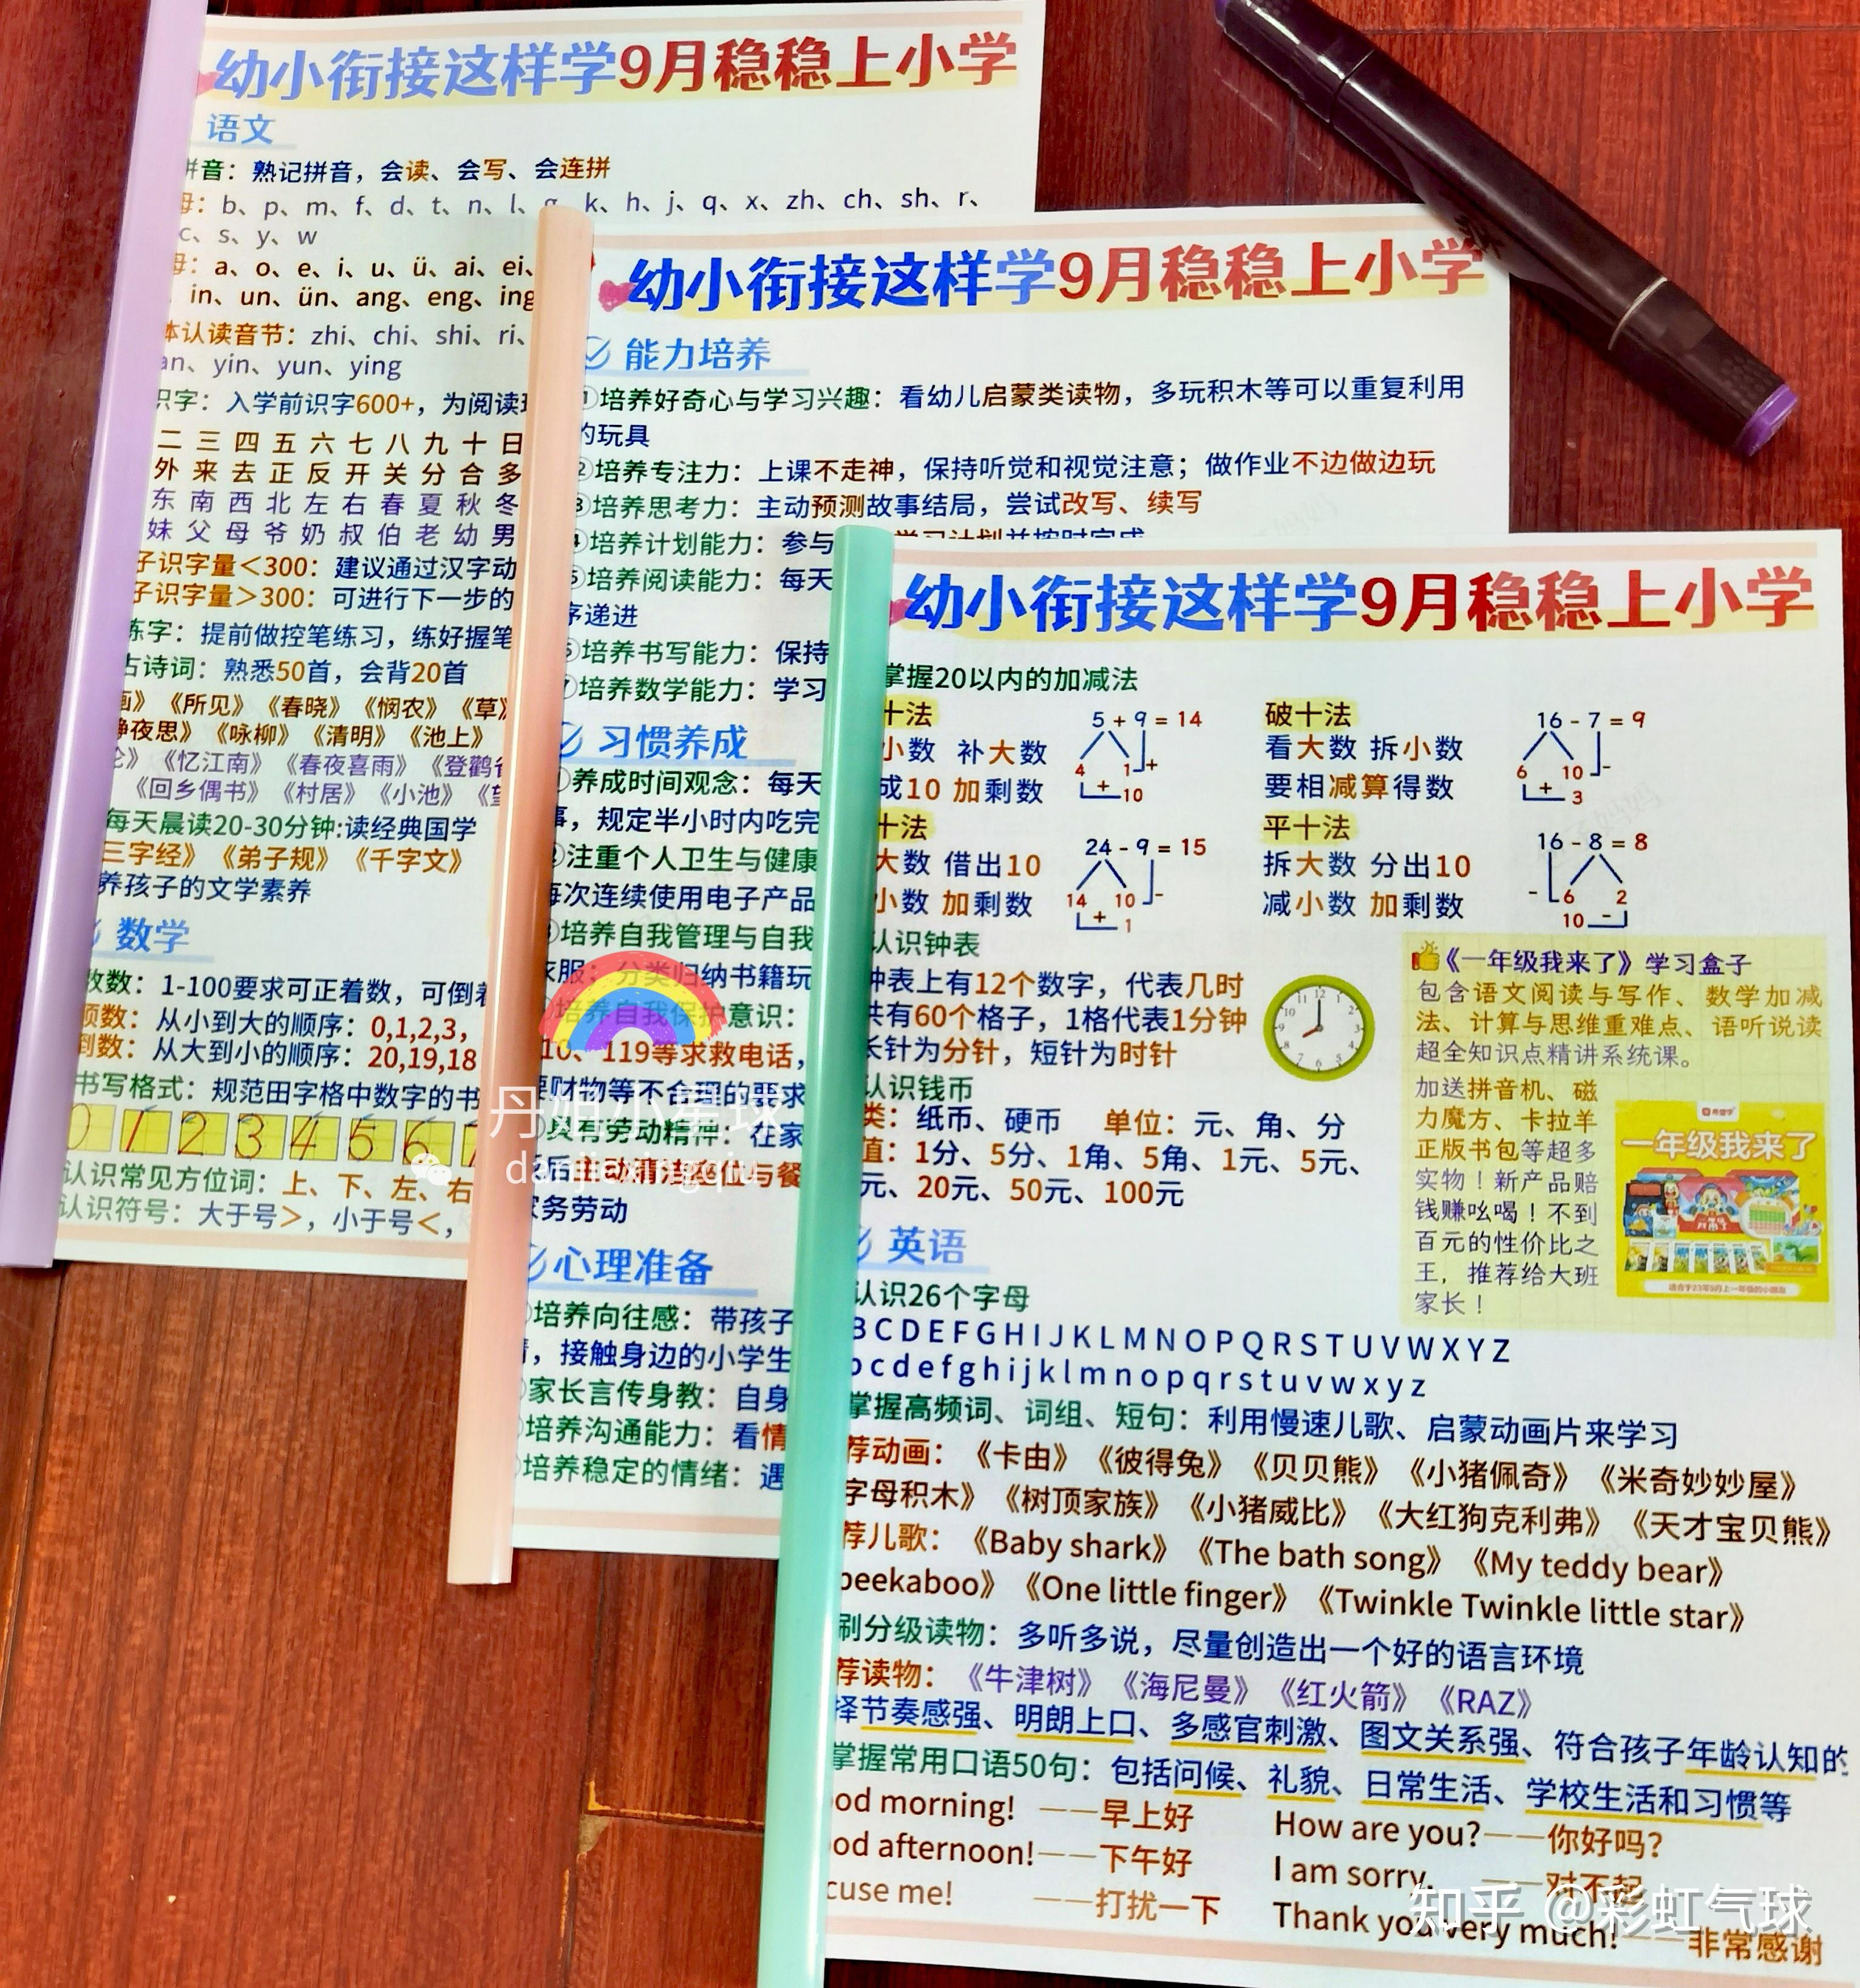 幼小衔接这样学9月稳稳上小学
语文
拼音：熟记拼音，会读、会写、会连拼
母：b、p、m、f、d、t、n、l、g、k、h、j、q、x、zh、ch、sh、r、
c、s、y、w
母：a、o、e、i、u、ü、ai、ei、
in、un、ün、ang、eng、ing
体认读音节：zhi、chi、shi、ri、
an、yin、yun、ying
识字：入学前识字600+，为阅读
二 三 四 五 六 七 八 九 十 日
外 来 去 正 反 开 关 分 合 多
东 南 西 北 左 右 春 夏 秋 冬
妹 父 母 爷 奶 叔 伯 老 幼 男
子识字量<300：建议通过汉字动
子识字量>300：可进行下一步的
练字：提前做控笔练习，练好握笔
古诗词：熟悉50首，会背20首
画》《所见》《春晓》《悯农》《草》
静夜思》《咏柳》《清明》《池上》
》《忆江南》《春夜喜雨》《登鹳
《回乡偶书》《村居》《小池》《望
每天晨读20-30分钟:读经典国学
三字经》《弟子规》《千字文》
养孩子的文学素养
数学
数数：1-100要求可正着数，可倒着
顺数：从小到大的顺序：0,1,2,3,
倒数：从大到小的顺序：20,19,18
书写格式：规范田字格中数字的书
0 1 2 3 4 5 6 7
认识常见方位词：上、下、左、右
认识符号：大于号>，小于号<，
幼小衔接这样学9月稳稳上小学
能力培养
①培养好奇心与学习兴趣：看幼儿启蒙类读物，多玩积木等可以重复利用
的玩具
②培养专注力：上课不走神，保持听觉和视觉注意；做作业不边做边玩
③培养思考力：主动预测故事结局，尝试改写、续写
④培养计划能力：参与 学习计划并按时完成
⑤培养阅读能力：每天
序递进
⑥培养书写能力：保持
⑦培养数学能力：学习
习惯养成
①养成时间观念：每天
事，规定半小时内吃完
②注重个人卫生与健康
每次连续使用电子产品
③培养自我管理与自我
衣服；分类归纳书籍玩
培养自我保护意识：
10、119等求救电话，
要财物等不合理的要求
具有劳动精神：在家
饭后主动清洁桌位与餐
家务劳动
心理准备
培养向往感：带孩子
，接触身边的小学生
家长言传身教：自身
培养沟通能力：看情
培养稳定的情绪：遇
幼小衔接这样学9月稳稳上小学
掌握20以内的加减法
十法
小数 补大数
成10 加剩数
5 + 9 = 14
4 1 +
+ 10
破十法
看大数 拆小数
要相减算得数
16 - 7 = 9
6 10 -
+ 3
十法
大数 借出10
小数 加剩数
24 - 9 = 15
14 10 -
+ 1
平十法
拆大数 分出10
减小数 加剩数
16 - 8 = 8
- 6 2
10 -
认识钟表
钟表上有12个数字，代表几时
共有60个格子，1格代表1分钟
长针为分针，短针为时针
认识钱币
类：纸币、硬币 单位：元、角、分
值：1分、5分、1角、5角、1元、5元、
元、20元、50元、100元
《一年级我来了》学习盒子
包含语文阅读与写作、数学加减
法、计算与思维重难点、语听说读
超全知识点精讲系统课。
加送拼音机、磁
力魔方、卡拉羊
正版书包等超多
实物！新产品赔
钱赚吆喝！不到
百元的性价比之
王，推荐给大班
家长！
希望学
一年级我来了
适合于23年9月上一年级的小朋友
英语
认识26个字母
B C D E F G H I J K L M N O P Q R S T U V W X Y Z
b c d e f g h i j k l m n o p q r s t u v w x y z
掌握高频词、词组、短句：利用慢速儿歌、启蒙动画片来学习
荐动画：《卡由》《彼得兔》《贝贝熊》《小猪佩奇》《米奇妙妙屋》
字母积木》《树顶家族》《小猪威比》《大红狗克利弗》《天才宝贝熊》
荐儿歌：《Baby shark》《The bath song》《My teddy bear》
peekaboo》《One little finger》《Twinkle Twinkle little star》
刷分级读物：多听多说，尽量创造出一个好的语言环境
荐读物：《牛津树》《海尼曼》《红火箭》《RAZ》
择节奏感强、明朗上口、多感官刺激、图文关系强、符合孩子年龄认知的
掌握常用口语50句：包括问候、礼貌、日常生活、学校生活和习惯等
ood morning! ——早上好 How are you?——你好吗?
ood afternoon!——下午好 I am sorry. ——对不起
cuse me! ——打扰一下 Thank you very much!——非常感谢
丹姐小星球
danjiexingqiu
知乎 @彩虹气球